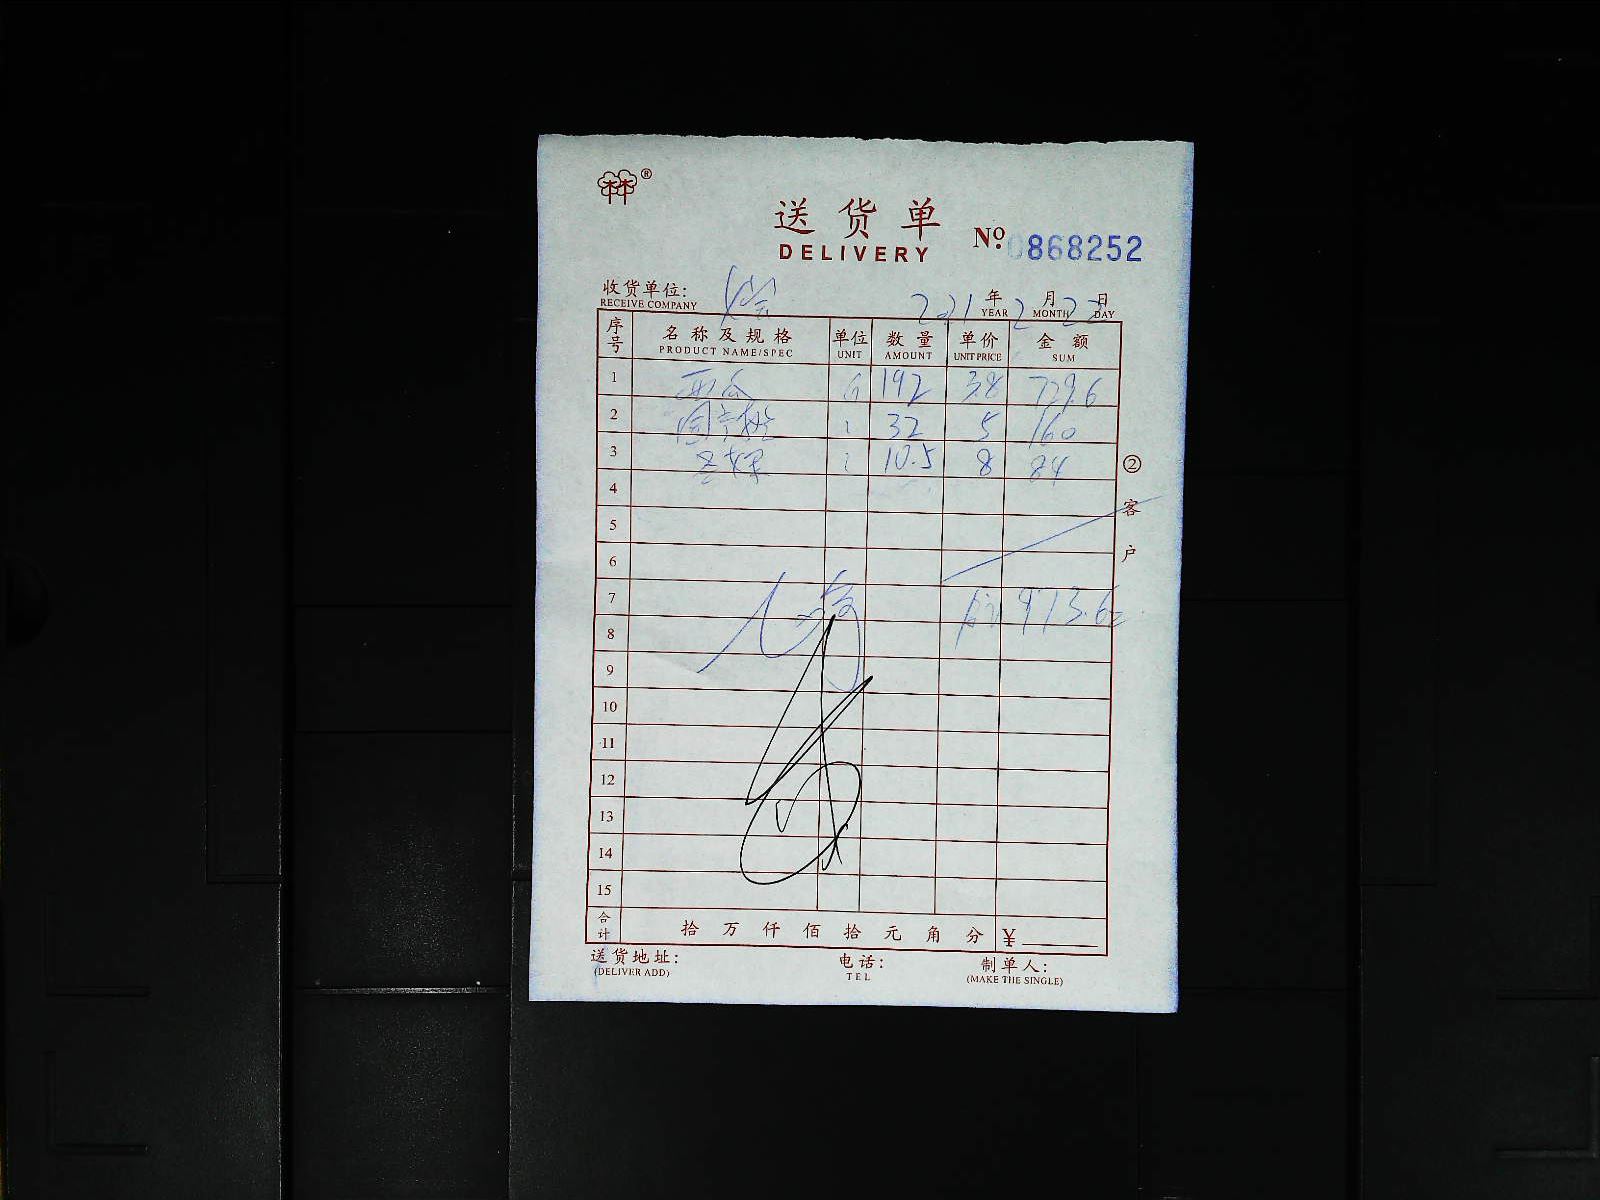 ®
送货单
DELIVERY
Nº. 0868252
收货单位:
RECEIVE COMPANY
2021 年 2 月 22 日
YEAR MONTH DAY
序号 名称及规格 单位 数量 单价 金额
PRODUCT NAME/SPEC UNIT AMOUNT UNIT PRICE SUM
1 西瓜 192 3.8 729.6
2 32 5 160
3 10.5 8 84
4
5
6
7 合计 973.6
8
9
10
11
12
13
14
15
合计 拾 万 仟 佰 拾 元 角 分 ¥
送货地址: 电话: 制单人:
(DELIVER ADD) TEL (MAKE THE SINGLE)
②客户